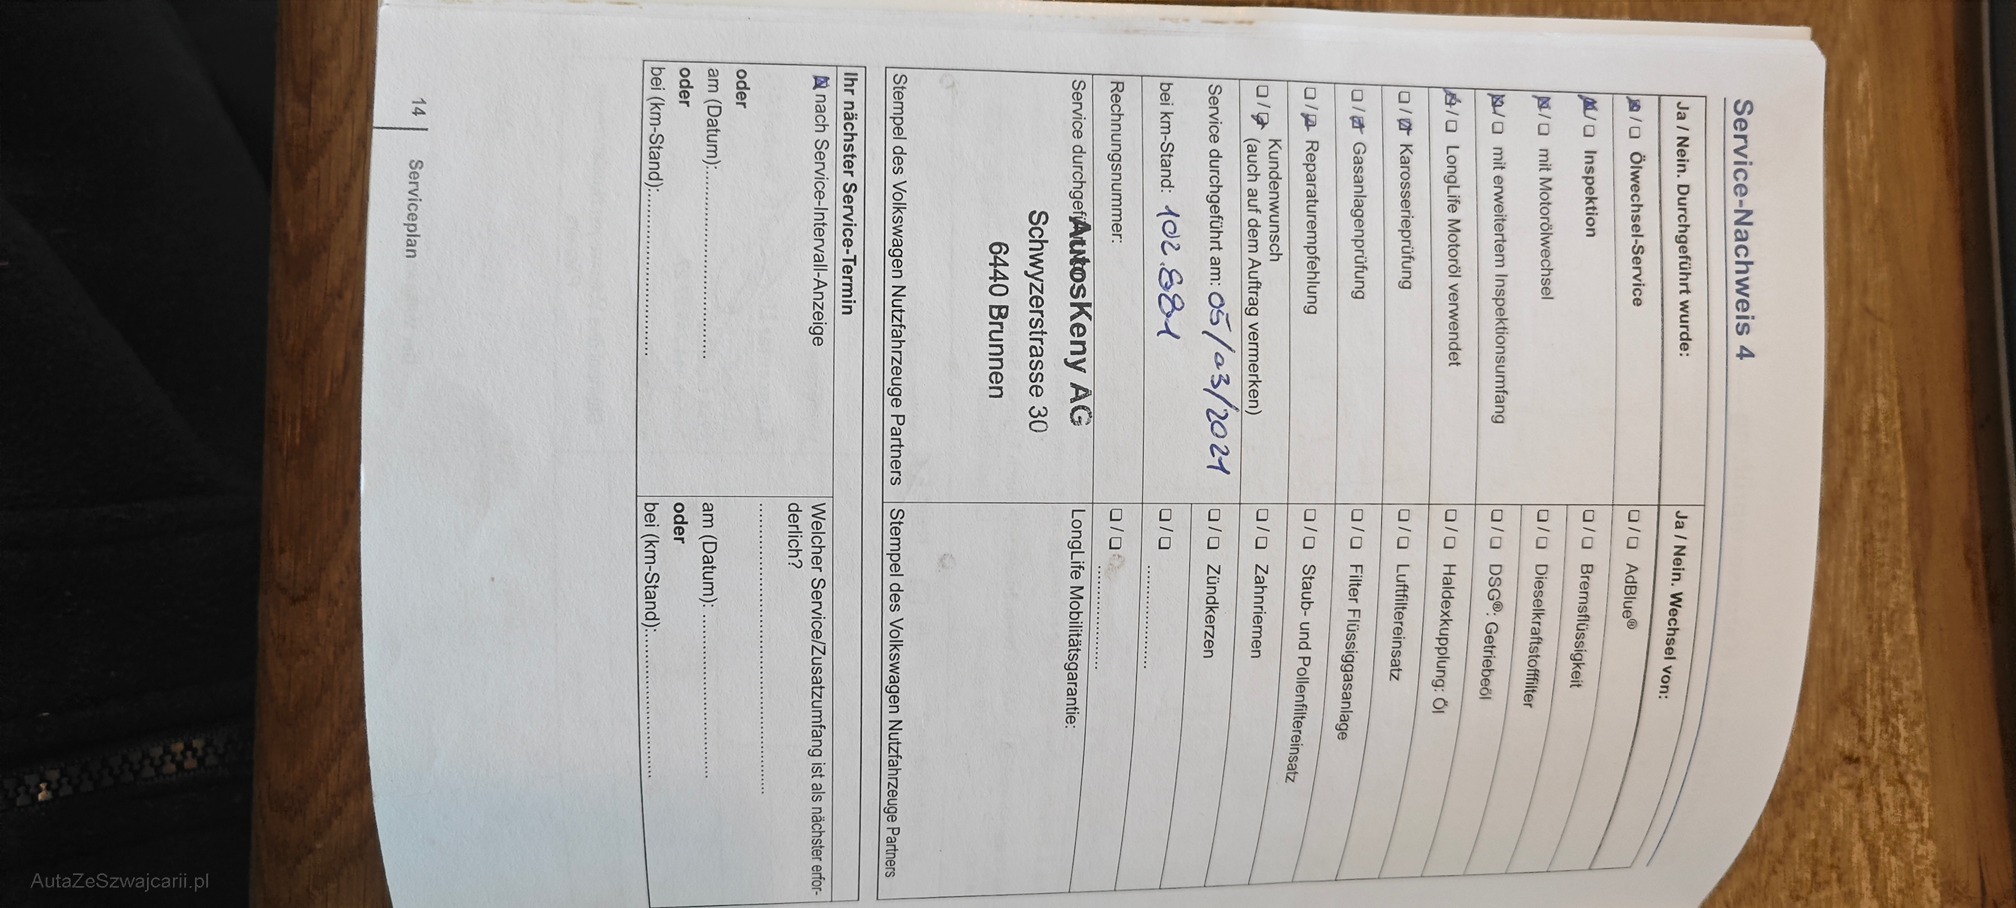 Service-Nachweis 4
Ja / Nein. Durchgeführt wurde:
☒ / ☐ Ölwechsel-Service
☒ / ☐ Inspektion
☒ / ☐ mit Motorölwechsel
☒ / ☐ mit erweitertem Inspektionsumfang
☒ / ☐ LongLife Motoröl verwendet
☐ / ☒ Karosserieprüfung
☐ / ☒ Gasanlagenprüfung
☐ / ☒ Reparaturempfehlung
☐ / ☒ Kundenwunsch
(auch auf dem Auftrag vermerken)
Service durchgeführt am: 05/03/2021
bei km-Stand: 102.881
Rechnungsnummer:
Service durchgef
AutosKeny AG
Schwyzerstrasse 30
6440 Brunnen
Stempel des Volkswagen Nutzfahrzeuge Partners
Ja / Nein. Wechsel von:
☐ / ☐ AdBlue®
☐ / ☐ Bremsflüssigkeit
☐ / ☐ Dieselkraftstofffilter
☐ / ☐ DSG®: Getriebeöl
☐ / ☐ Haldexkupplung: Öl
☐ / ☐ Luftfiltereinsatz
☐ / ☐ Filter Flüssiggasanlage
☐ / ☐ Staub- und Pollenfiltereinsatz
☐ / ☐ Zahnriemen
☐ / ☐ Zündkerzen
☐ / ☐ ................
☐ / ☐ ................
LongLife Mobilitätsgarantie:
Stempel des Volkswagen Nutzfahrzeuge Partners
Ihr nächster Service-Termin
☒ nach Service-Intervall-Anzeige
oder
am (Datum):................................
oder
bei (km-Stand):............................
Welcher Service/Zusatzumfang ist als nächster erfor-
derlich?
................................................
am (Datum): ............................
oder
bei (km-Stand):........................
14 | Serviceplan
AutaZeSzwajcarii.pl